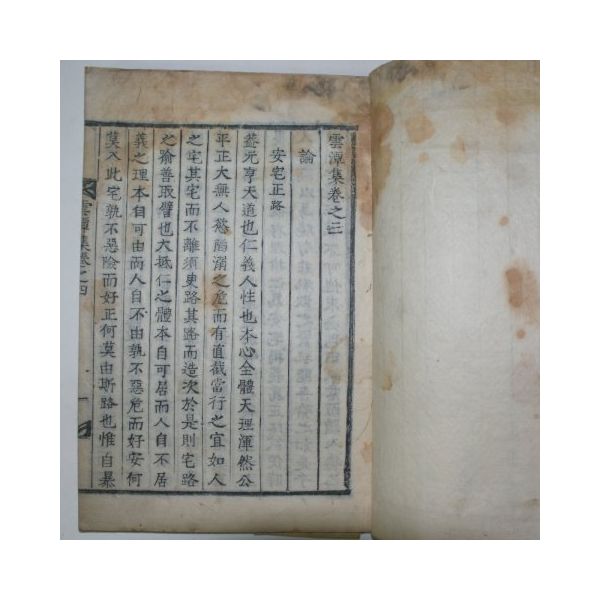 雲潭集卷之三
論
安宅正路
蓋元亨天道也仁義人性也本心全體天理渾然公
平正大無人慾陷溺之危而有直截當行之宜如人
之宅其宅而不離須臾路其路而造次於是則宅路
之喻善取譬也大抵仁之體本自可居而人自不居
義之理本自可由而人自不由孰不惡危而好安何
莫入此宅孰不惡險而好正何莫由斯路也惟自暴
雲潭集卷之四